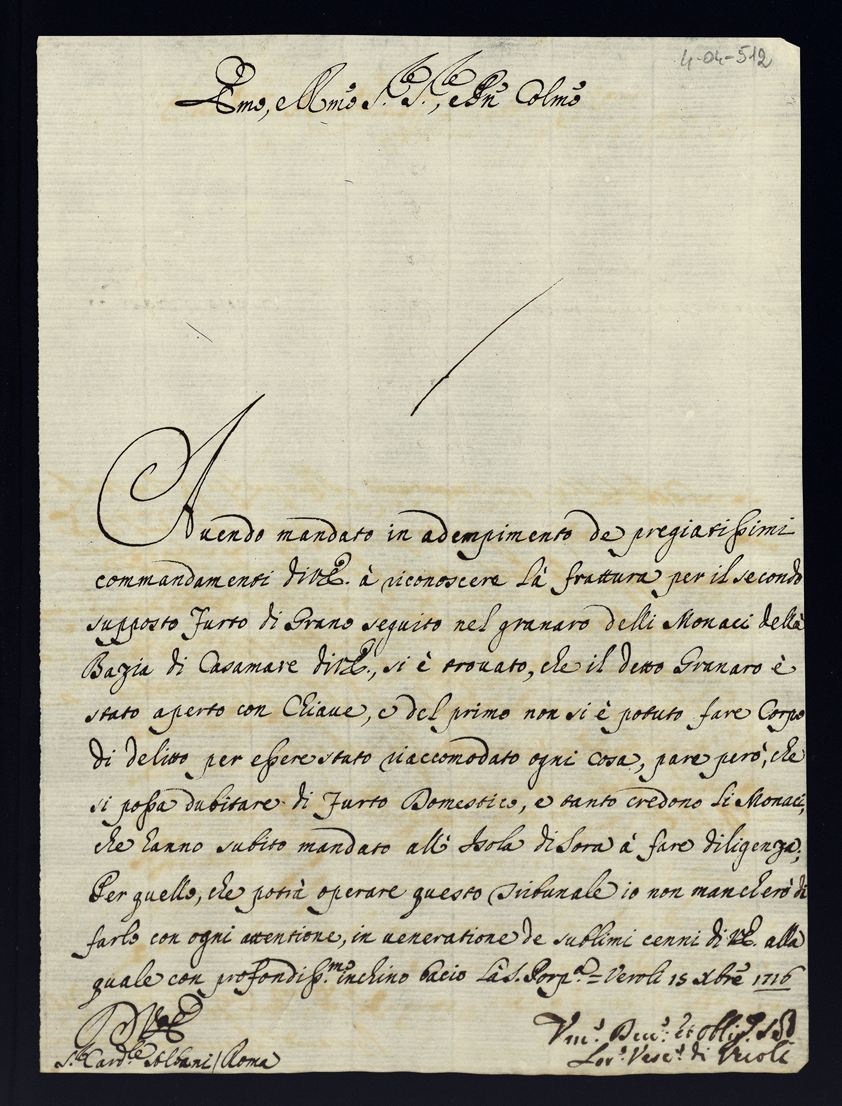 4-04-512
Emo, e Rmo Sre. Sre., e Pñe Colmo
Avendo mandato in adempimento de pregiatissimi
commandamenti di VE. à riconoscere La frattura per il secondo
supposto Furto di Grano seguito nel granaro delli Monaci della
Bazia di Casamare di VE., si è trovato, che il detto Granaro è
stato aperto con Chiave, e del primo non si è potuto fare Corpo
di delitto per essere stato riaccomodato ogni cosa, pare però, che
si possa dubitare di Furto Domestico, e tanto credono Li Monaci,
che hanno subito mandato all' Isola di Sora à fare diligenza;
Per quello, che potrà operare questo Tribunale io non mancherò di
farlo con ogni attentione, in veneratione de sublimi cenni di VE. alla
quale con profondiss.mo inchino bacio La S. Porp.a = Veroli 15 Xbre 1716
DVE
S.re Card.le Albani / Roma
Vm.o Dev.o et obblig.
Lor.o Vesc.o di Veroli